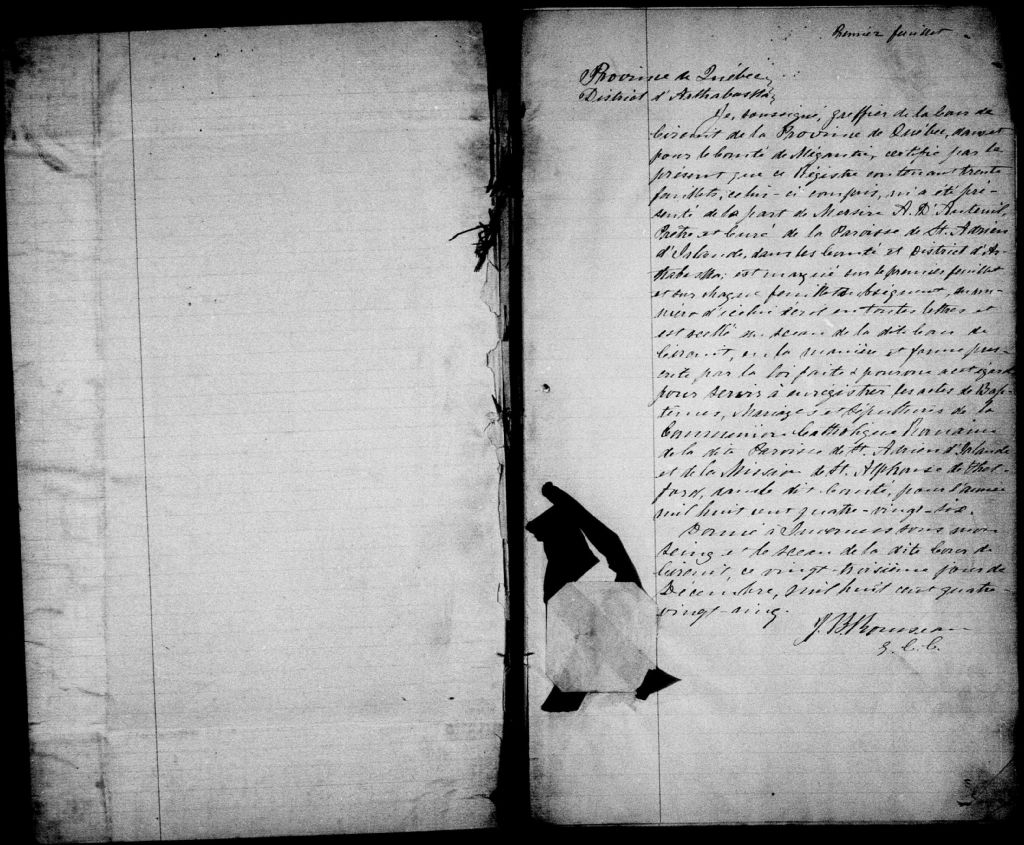 Premier feuillet
Province de Québec,
District d'Arthabaska,
Je, soussigné, greffier de la Cour de
Circuit de la Province de Québec, dans et
pour le Comté de Mégantic, certifie par le
présent que ce Régistre contenant trente
feuillets, celui-ci compris, m'a été pré-
senté de la part de Messire A. D'Auteuil,
Prêtre et Curé de la Paroisse de St. Adrien
d'Irlande, dans les Comté et District d'Ar-
thabaska; est marqué sur le premier feuillet
et sur chaque feuillet subséquent, du nu-
méro d'icelui écrit en toutes lettres et
est scellé du sceau de la dite Cour de
Circuit, en la manière et forme pres-
crite par la loi faite et pourvue à cet égard
pour servir à enrégistrer les actes de Bap-
têmes, Mariages et Sépultures de la
Communion Catholique Romaine
de la dite Paroisse de St. Adrien d'Irlande
et de la Mission de St. Alphonse de Thet-
ford, dans le dit Comté, pour l'année
mil huit cent quatre-vingt-six.
Donné à Inverness sous mon
seing et le sceau de la dite Cour de
Circuit, ce vingt-troisième jour de
Décembre, mil huit cent quatre-
vingt-cinq.
J. B. Rousseau
G. C. C.